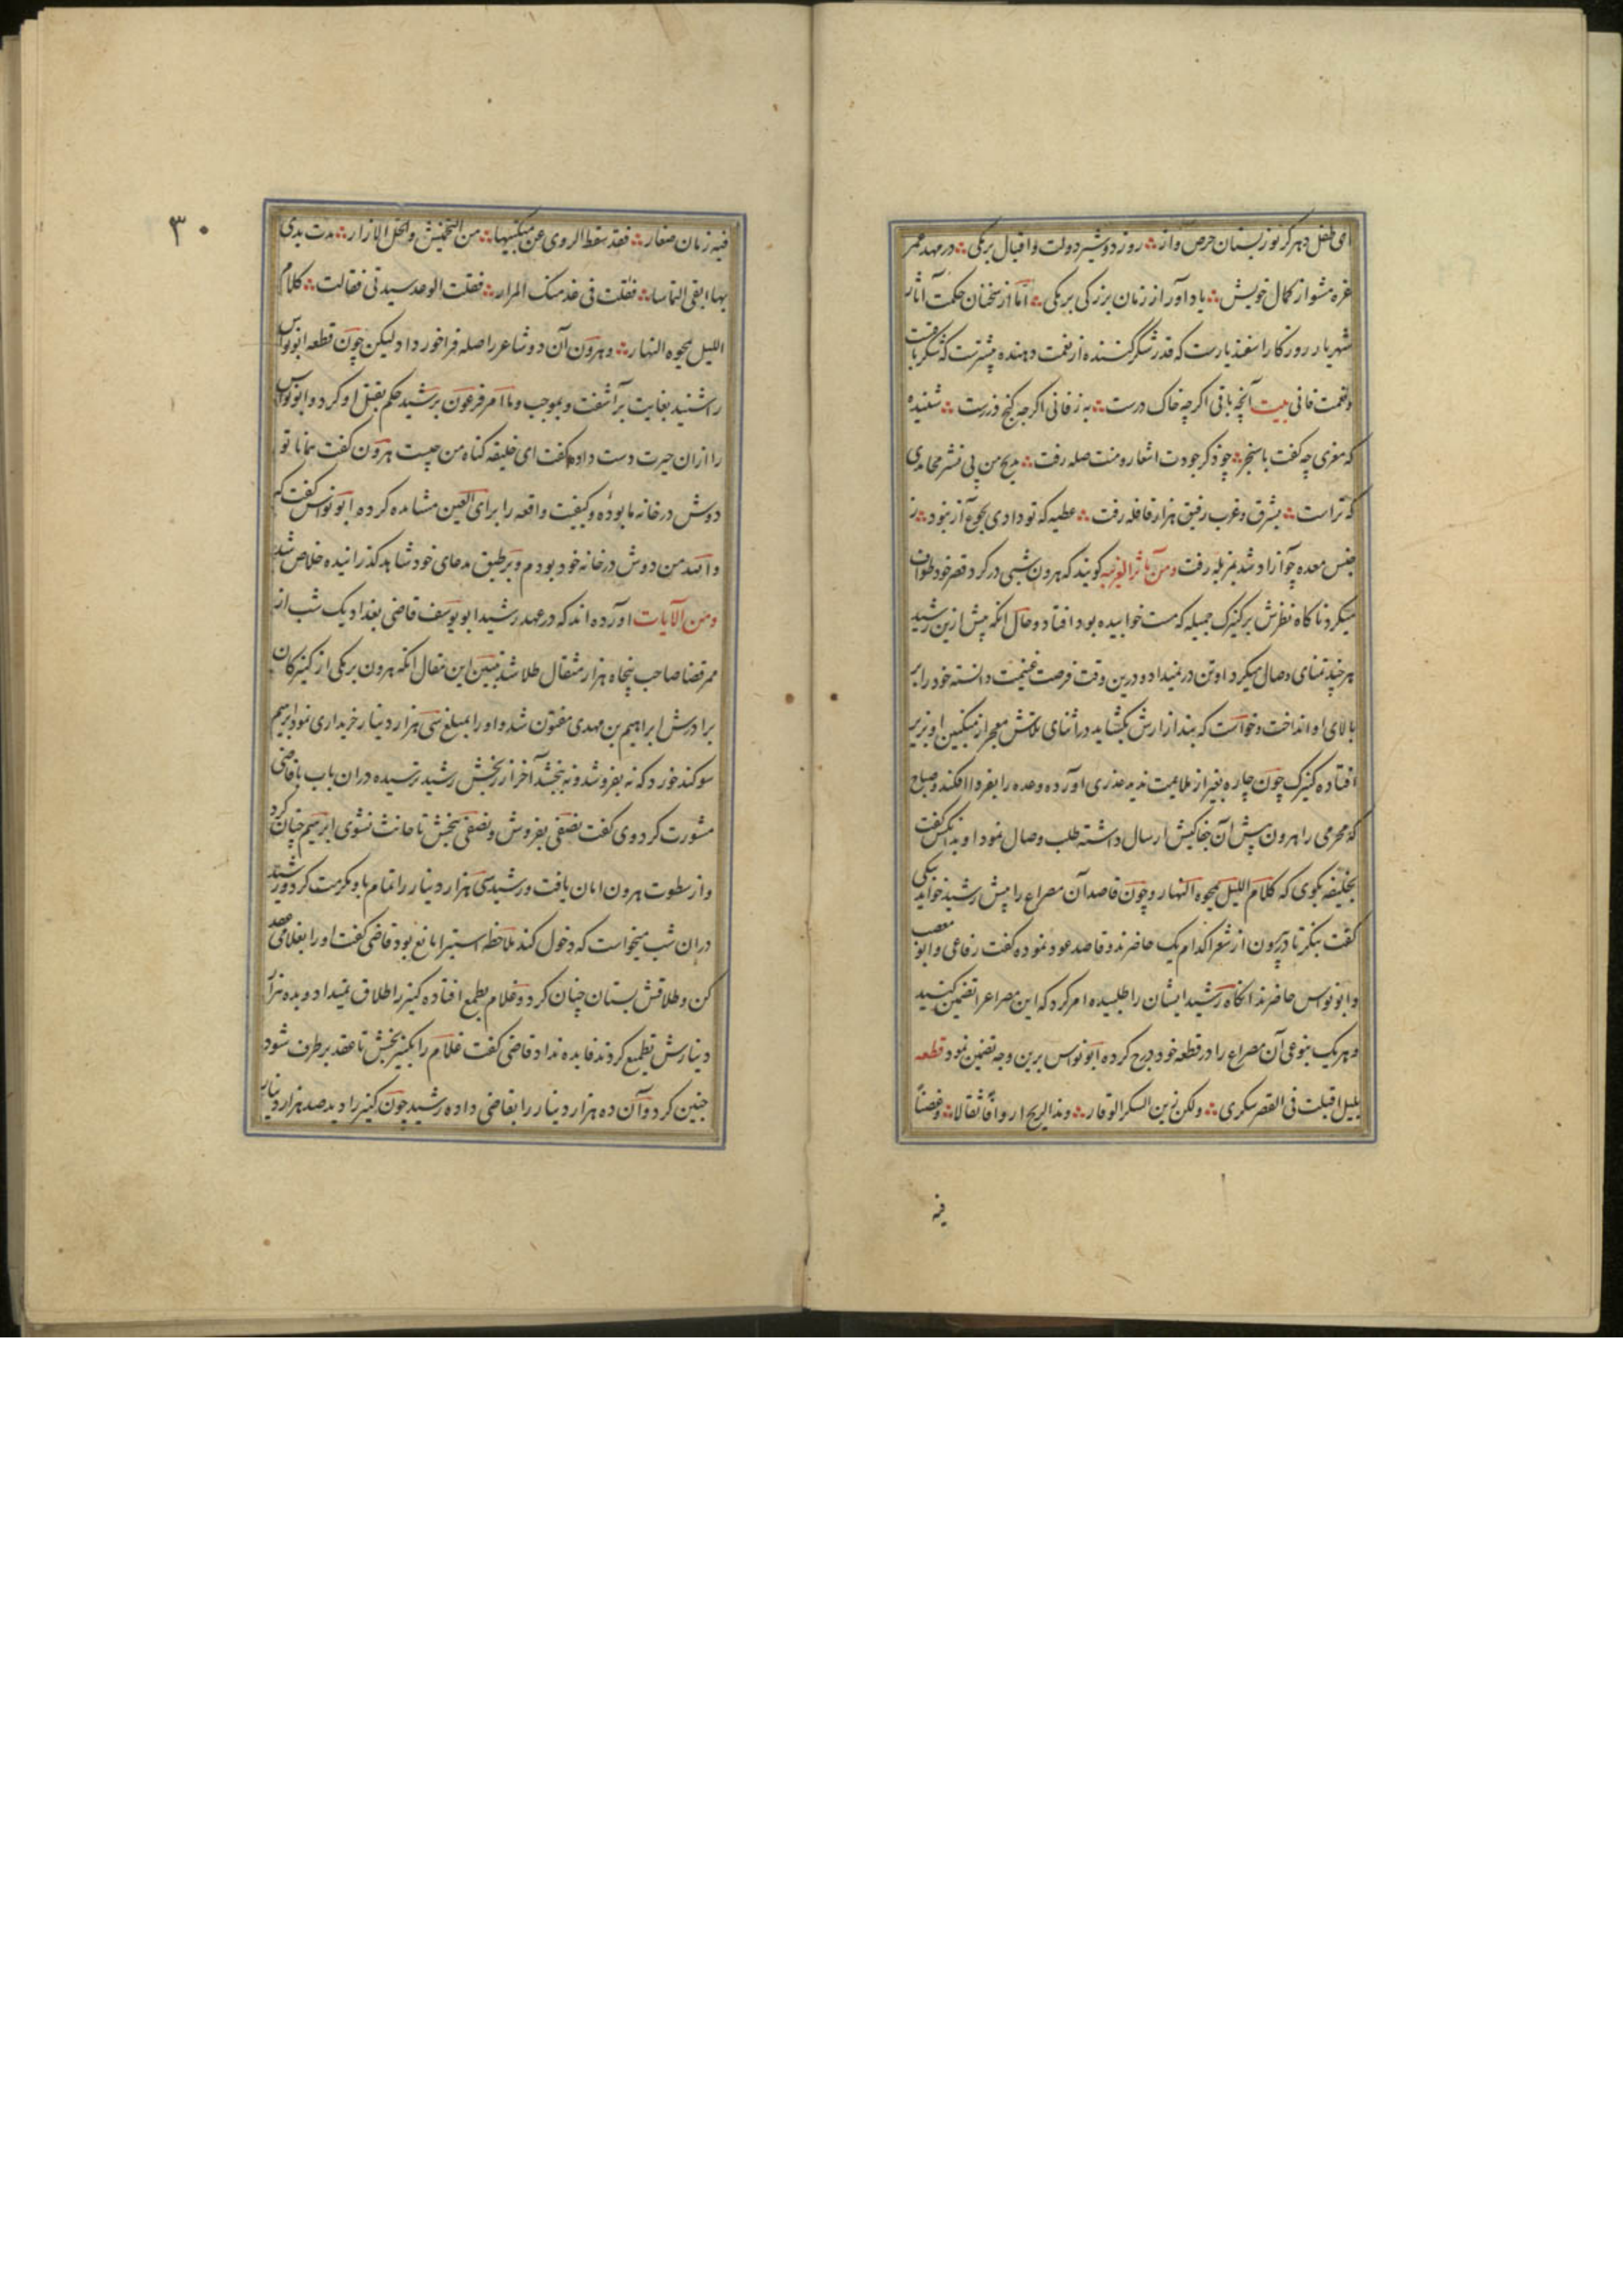 ای طفل دهر کر تو ز پستان حرص و از ؞ روزی دو شیر دولت و اقبال برمکی ؞ در مهد عمر
غره مشو از کمال خویش ؞ یاد آور از زمان بزرکی برمکی ؞ اما از سخنان حکمت آثار
شهریار روزکار اسفندیارست که قدر شکر کننده از نعمت دهنده بیشترست که شکر باقیست
و نعمت فانی بیت آنچه باقی اکرچه خاک درست ؞ به ز فانی اکرچه کنج زرست ؞ شنیده
که معزی چه کفت با سنجر ؞ چو ذکر جودت اشعار و منت صله رفت ؞ مدیح من پی نشر محامدی
که تراست ؞ بشرق و غرب رفیق هزار قافله رفت ؞ عطیه که تو دادی بجوع آز نبود ؞ ز
حبس معده چو آزاد شد بمزبله رفت و من مآثر الغریبه کویند که هرون شبی در کرد قصر خود طواف
میکرد ناکاه نظرش بر کنیزک جمیله که مست خوابیده بود افتاد و حال انکه پیش ازین رشید
هر چند تمنای وصال میکرد او تن در نمیداد و درین وقت فرصت غنیمت دانسته خود را بر
بالای او انداخت و خواست که بند ازارش بکشاید در اثنای تلاش معجر از منکبین او بزیر
افتاده کنیزک چون چاره بغیر از ملایمت ندید عذری آورده وعده را بفردا افکند و صباح
که محرمی را هرون پیش آن جفاکیش ارسال داشته طلب وصال نمود او بدان کس کفت
بخلیفه بکوی که کلام اللیل یمحوه النهار و چون قاصد آن مصراع را پیش رشید خواند
کفت بنکر تا در بیرون از شعرا کدام یک حاضرند و قاصد عود نموده کفت رقاعی و ابو مصعب
و ابو نواس حاضرند انکاه رشید ایشان را طلبیده امر کرد که این مصراع را تضمین کنید
و هر یک بنوعی آن مصراع را در قطعه خود درج کرده ابو نواس برین وجه تضمین نمود قطعه
بلیل اقبلت فی القصر سکری ؞ ولکن زین السکر الوقار ؞ و هذا الریح اردافا ثقالا ؞ و غصنا
فیه
۳۰
فیه زمان صغار ؞ فقد سقط الردی عن منکبیها ؞ من التخمیش و انحل الازار ؞ مدت یدی
بها ابقی التماسا ؞ فقلت فی غد منک المرار ؞ فقلت الوعد سیدتی فقالت ؞ کلام
اللیل یمحوه النهار ؞ و هرون آن دو شاعر را صله فراخور داد لیکن چون قطعه ابو نواس
را شنید بغایت برآشفت و بموجب و ما امر فرعون برشید حکم بقتل او کرد و ابو نواس
را از ان حیرت دست داده کفت ای خلیفه کناه من چیست هرون کفت همانا تو
دوش در خانه ما بوده و کیفیت واقعه را برای العین مشاهده کرده ابو نواس کفت که
والله من دوش در خانه خود بودم و بر طبق مدعای خود شاهد کذرانیده خلاص شد
و من الآیات آورده اند که در عهد رشید ابو یوسف قاضی بغداد یک شب از
ممر قضا صاحب پنجاه هزار مثقال طلا شد تبیین این مقال انکه هرون بر یکی از کنیزکان
برادرش ابراهیم بن مهدی مفتون شد و او را بمبلغ سی هزار دینار خریداری نمود ابراهیم
سوکند خورد که نه بفروشد و نه بخشد آخر از رنجش رشید ترسیده در ان باب با قاضی
مشورت کرد وی کفت نصفی بفروش و نصفی ببخش تا حانث نشوی ابراهیم چنان کرد
و از سطوت هرون امان یافت و رشید سی هزار دینار را تمام باو مکرمت کرد و رشید
در ان شب میخواست که دخول کند ملاحظه استبرا مانع بود قاضی کفت او را بغلامی عقد
کن و طلاقش بستان چنان کرد و غلام بطمع افتاده کنیز را طلاق نمیداد و بده هزار
دینارش تطمیع کردند فایده نداد قاضی کفت غلام را بکنیز بخش تا عقد بر طرف شود
چنین کرد و آن ده هزار دینار را بقاضی داده رشید چون کنیز را دید صد هزار دینار